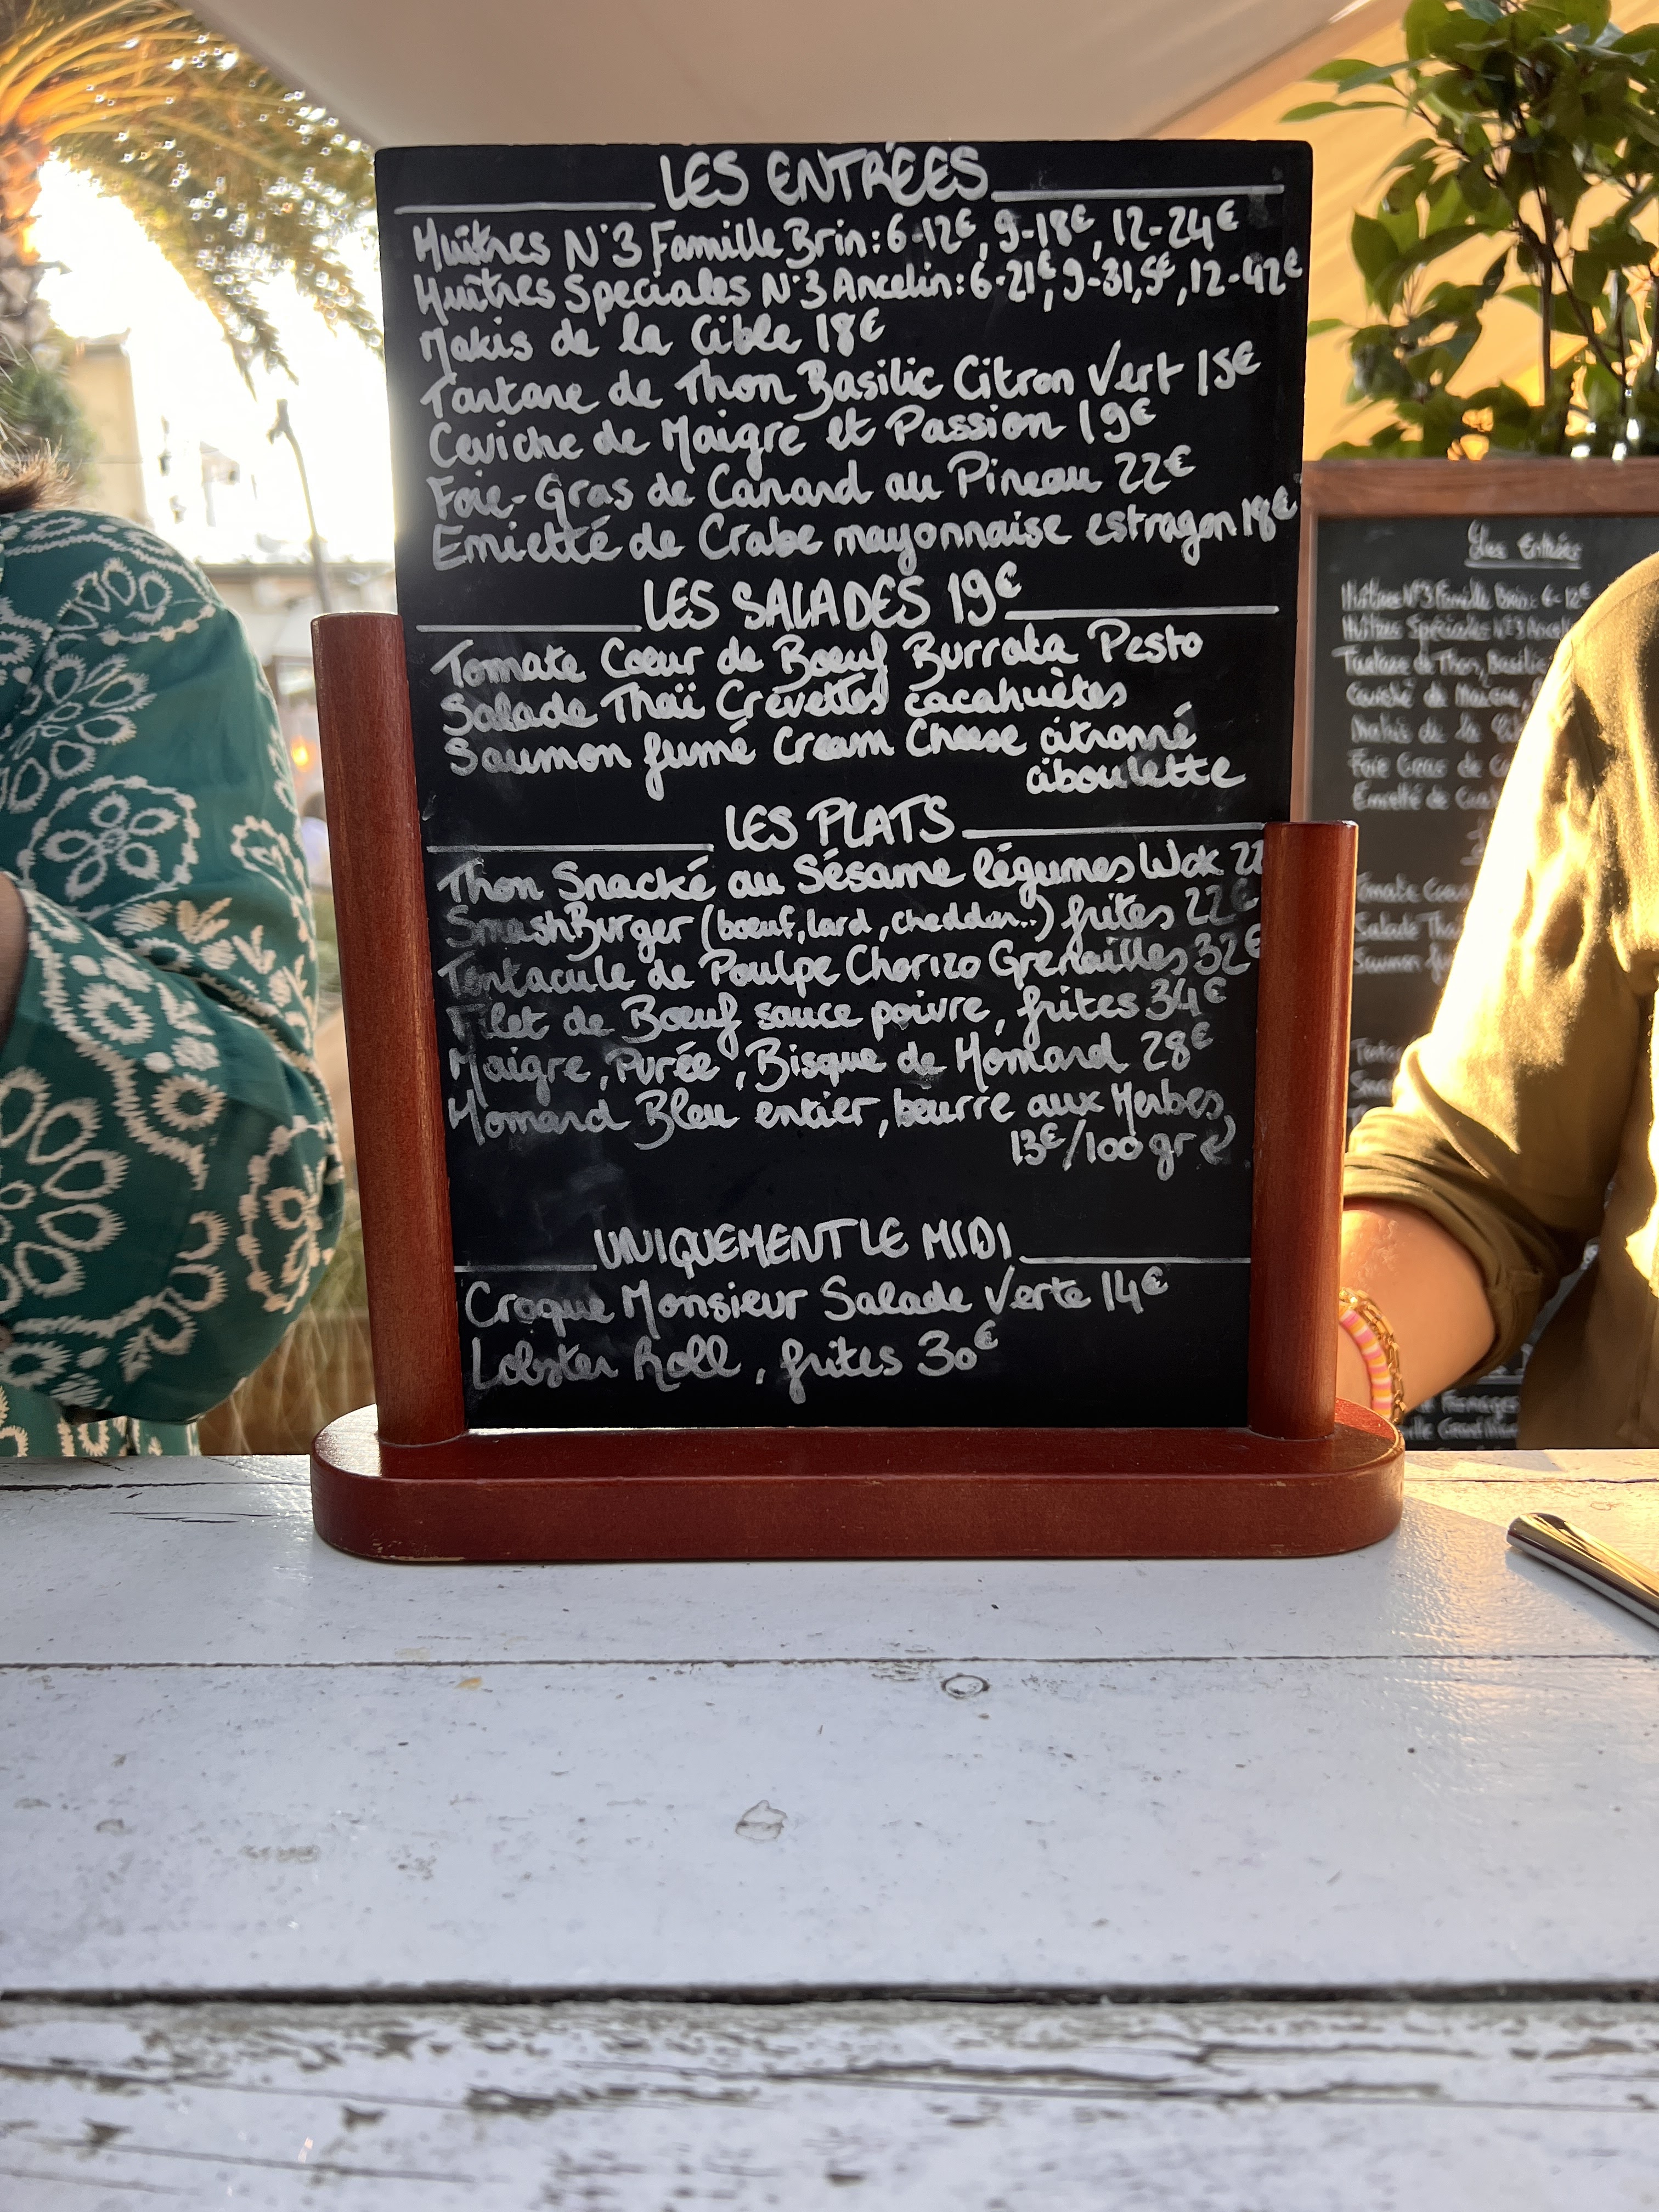 LES ENTRÉES
Huîtres N°3 Famille Brin : 6-12€, 9-18€, 12-24€
Huîtres Speciales N°3 Ancelin : 6-21€, 9-31,5€, 12-42€
Makis de la Cible 18€
Tartare de Thon Basilic Citron Vert 15€
Ceviche de Maigre et Passion 19€
Foie-Gras de Canard au Pineau 22€
Emietté de Crabe mayonnaise estragon 18€
LES SALADES 19€
Tomate Coeur de Boeuf Burrata Pesto
Salade Thaï Crevettes cacahuètes
Saumon fumé Cream Cheese citronné
ciboulette
LES PLATS
Thon Snacké au Sésame légumes Wok 22
SmashBurger (boeuf, lard, cheddar..) frites 22€
Tentacule de Poulpe Chorizo Grenailles 32€
Filet de Boeuf sauce poivre, frites 34€
Maigre, Purée, Bisque de Homard 28€
Homard Bleu entier, beurre aux Herbes
13€/100gr
UNIQUEMENT LE MIDI
Croque Monsieur Salade Verte 14€
Lobster Roll, frites 30€
Les Entrées
Huîtres N°3 Famille Brin : 6-12€
Huîtres Spéciales N°3
Tartare de Thon, Basilic
de
de la
Foie Gras de
Emietté de
Salade
Saumon